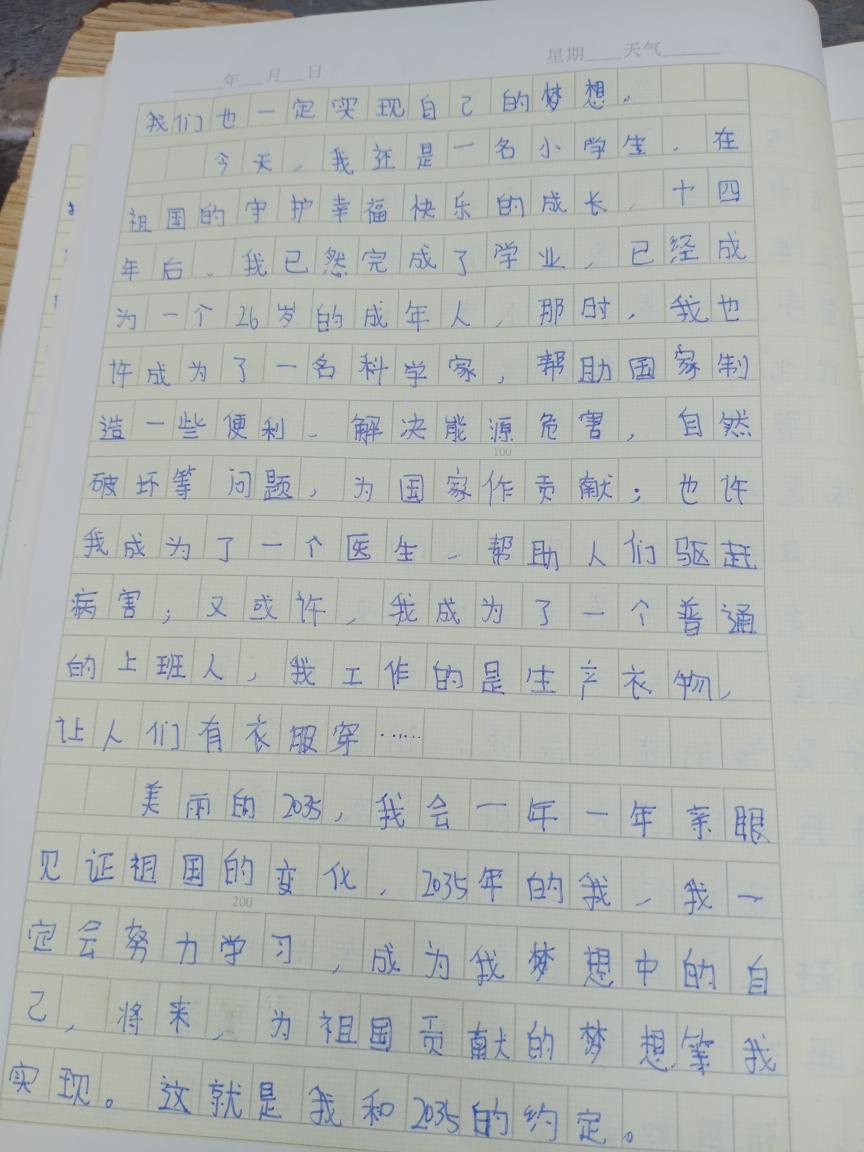 年 月 日 星期 天气
我们也一定实现自己的梦想。
今天，我还是一名小学生，在
祖国的守护幸福快乐的成长，十四
年后、我已然完成了学业，已经成
为一个26岁的成年人，那时，我也
许成为了一名科学家，帮助国家制
造一些便利、解决能源危害，自然
100
破坏等问题，为国家作贡献；也许
我成为了一个医生，帮助人们驱赶
病害；又或许，我成为了一个普通
的上班人，我工作的是生产衣物，
让人们有衣服穿……
美丽的2035，我会一年一年亲眼
见证祖国的变化，2035年的我，我一
200
定会努力学习，成为我梦想中的自
己，将来，为祖国贡献的梦想等我
实现。这就是我和2035的约定。